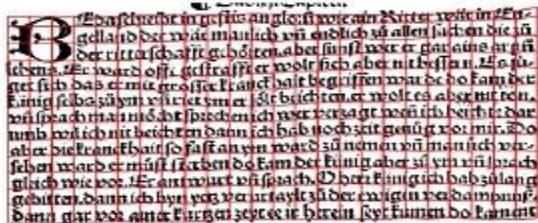 BEda schreibt in gestis anglorũ wie ain Ritter wär in En
gelland der wär manlich vñ endlich zů allen sachen die zů
der ritterschafft gehörten. aber sunst wer er gar ains argen
lebens. Er ward offt gestrafft er wolt sich aber nit bessern. Es fü
get sich das er mit grosser kranckhait begriffen ward. do kam der
künig selbs zů ym vñ riet ym er sölt beichten. er wolt es aber nit ton.
vñ sprach man möcht sprechen ich wer verzagt weñ ich beicht. dar
umb wil ich nit beichten dann ich hab noch zeit genůg vor mir. Do
aber die kranckhait so fast an ym ward zů nemen vñ man sich ver
sehen ward er müst sterben do kam der künig aber zů ym vñ sprach
gleich wie vor. Er antwurt vñ sprach. O herr künig ich hab zů lang
gebitten. dann ich byn yetz verurtaylt zů der ewigen verdampnuß
dann gar vor ainer kurtzen zeyt ee ir herein seyt kumen do kamant